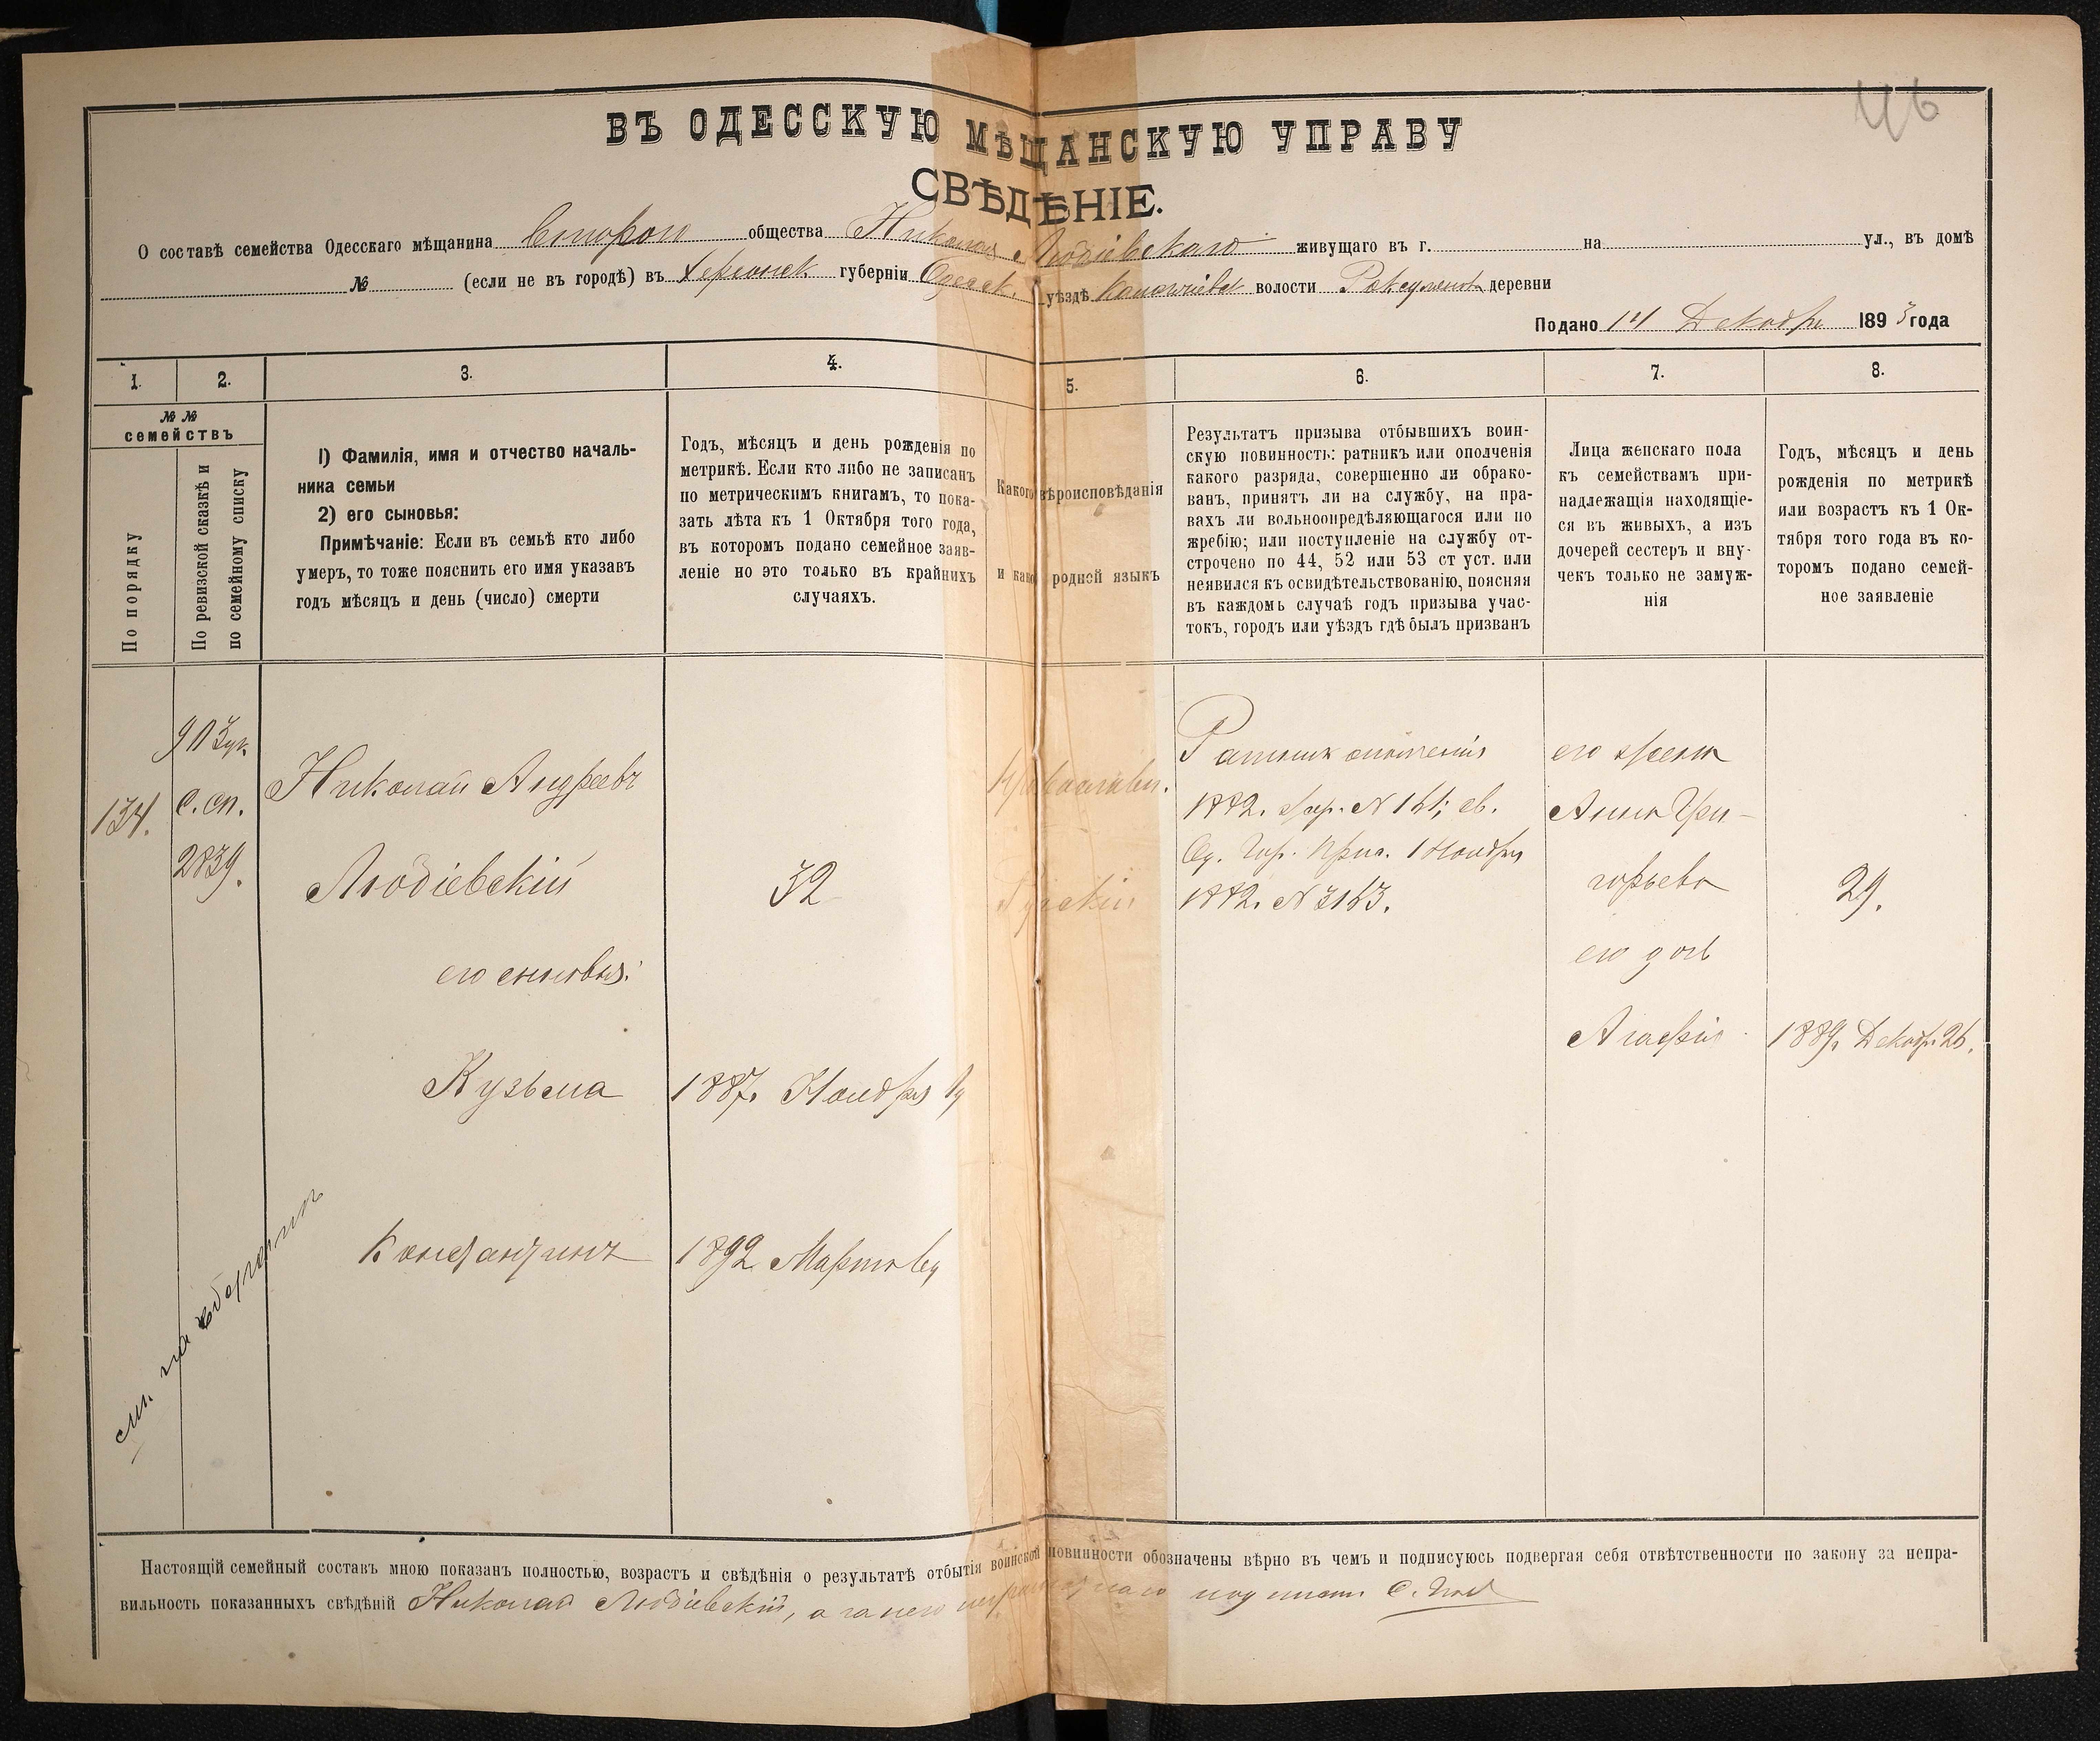 ВЪ ОДЕССКУЮ МѢЩАНСКУЮ УПРАВУ
СВѢДѢНІЕ.
О составѣ семейства Одесскаго мѣщанина Второго общества Николая Людіевскаго живущаго въ г. на ул., въ домѣ
№ (если не въ городѣ) въ Херсонск губерніи Одесск. уѣздѣ волости деревни
Подано 14 Декабря 1893 года
1. 2. 3. 4. 5. 6. 7. 8.
№ №
семействъ
По порядку
По ревизской сказкѣ и
по семейному списку
1) Фамилія, имя и отчество началь-
ника семьи
2) его сыновья:
Примѣчаніе: Если въ семьѣ кто либо
умеръ, то тоже пояснить его имя указавъ
годъ мѣсяцъ и день (число) смерти
Годъ, мѣсяцъ и день рожденія по
метрикѣ. Если кто либо не записанъ
по метрическимъ книгамъ, то пока-
зать лѣта къ 1 Октября того года,
въ которомъ подано семейное заяв-
леніе но это только въ крайнихъ
случаяхъ.
Какого вѣроисповѣданія
и какой родной языкъ
Результатъ призыва отбывшихъ воин-
скую повинность: ратникъ или ополченія
какого разряда, совершенно ли обрако-
ванъ, принятъ ли на службу, на пра-
вахъ ли вольноопредѣляющагося или по
жребію; или поступленіе на службу от-
строчено по 44, 52 или 53 ст уст. или
неявился къ освидѣтельствованію, поясняя
въ каждомъ случаѣ годъ призыва учас-
токъ, городъ или уѣздъ гдѣ былъ призванъ
Лица женскаго пола
къ семействамъ при-
надлежащія находящіе-
ся въ живыхъ, а изъ
дочерей сестеръ и вну-
чекъ только не замуж-
нія
Годъ, мѣсяцъ и день
рожденія по метрикѣ
или возрастъ къ 1 Ок-
тября того года въ ко-
торомъ подано семей-
ное заявленіе
134.
с. сп.
2839.
Николай Андреевъ
Людіевскій
32
Православн.
Рускій
Ратник ополченія
1882. жер. № 161; св.
Од. Гор. Прис. 1 Ноября
1882. № 3163.
его жена
Анна Гри-
горьева
29.
его дочь
Агафія
1889. Декабр. 26.
его сыновья:
Кузьма
1887. Ноября
Константинъ
1892 Марта
см. на обороте
Настоящій семейный составъ мною показанъ полностью, возрастъ и свѣдѣнія о результатѣ отбытія воинской повинности обозначены вѣрно въ чемъ и подписуюсь подвергая себя отвѣтственности по закону за непра-
вильность показанныхъ свѣдѣній Николай Людіевскій, а за него неграмотнаго